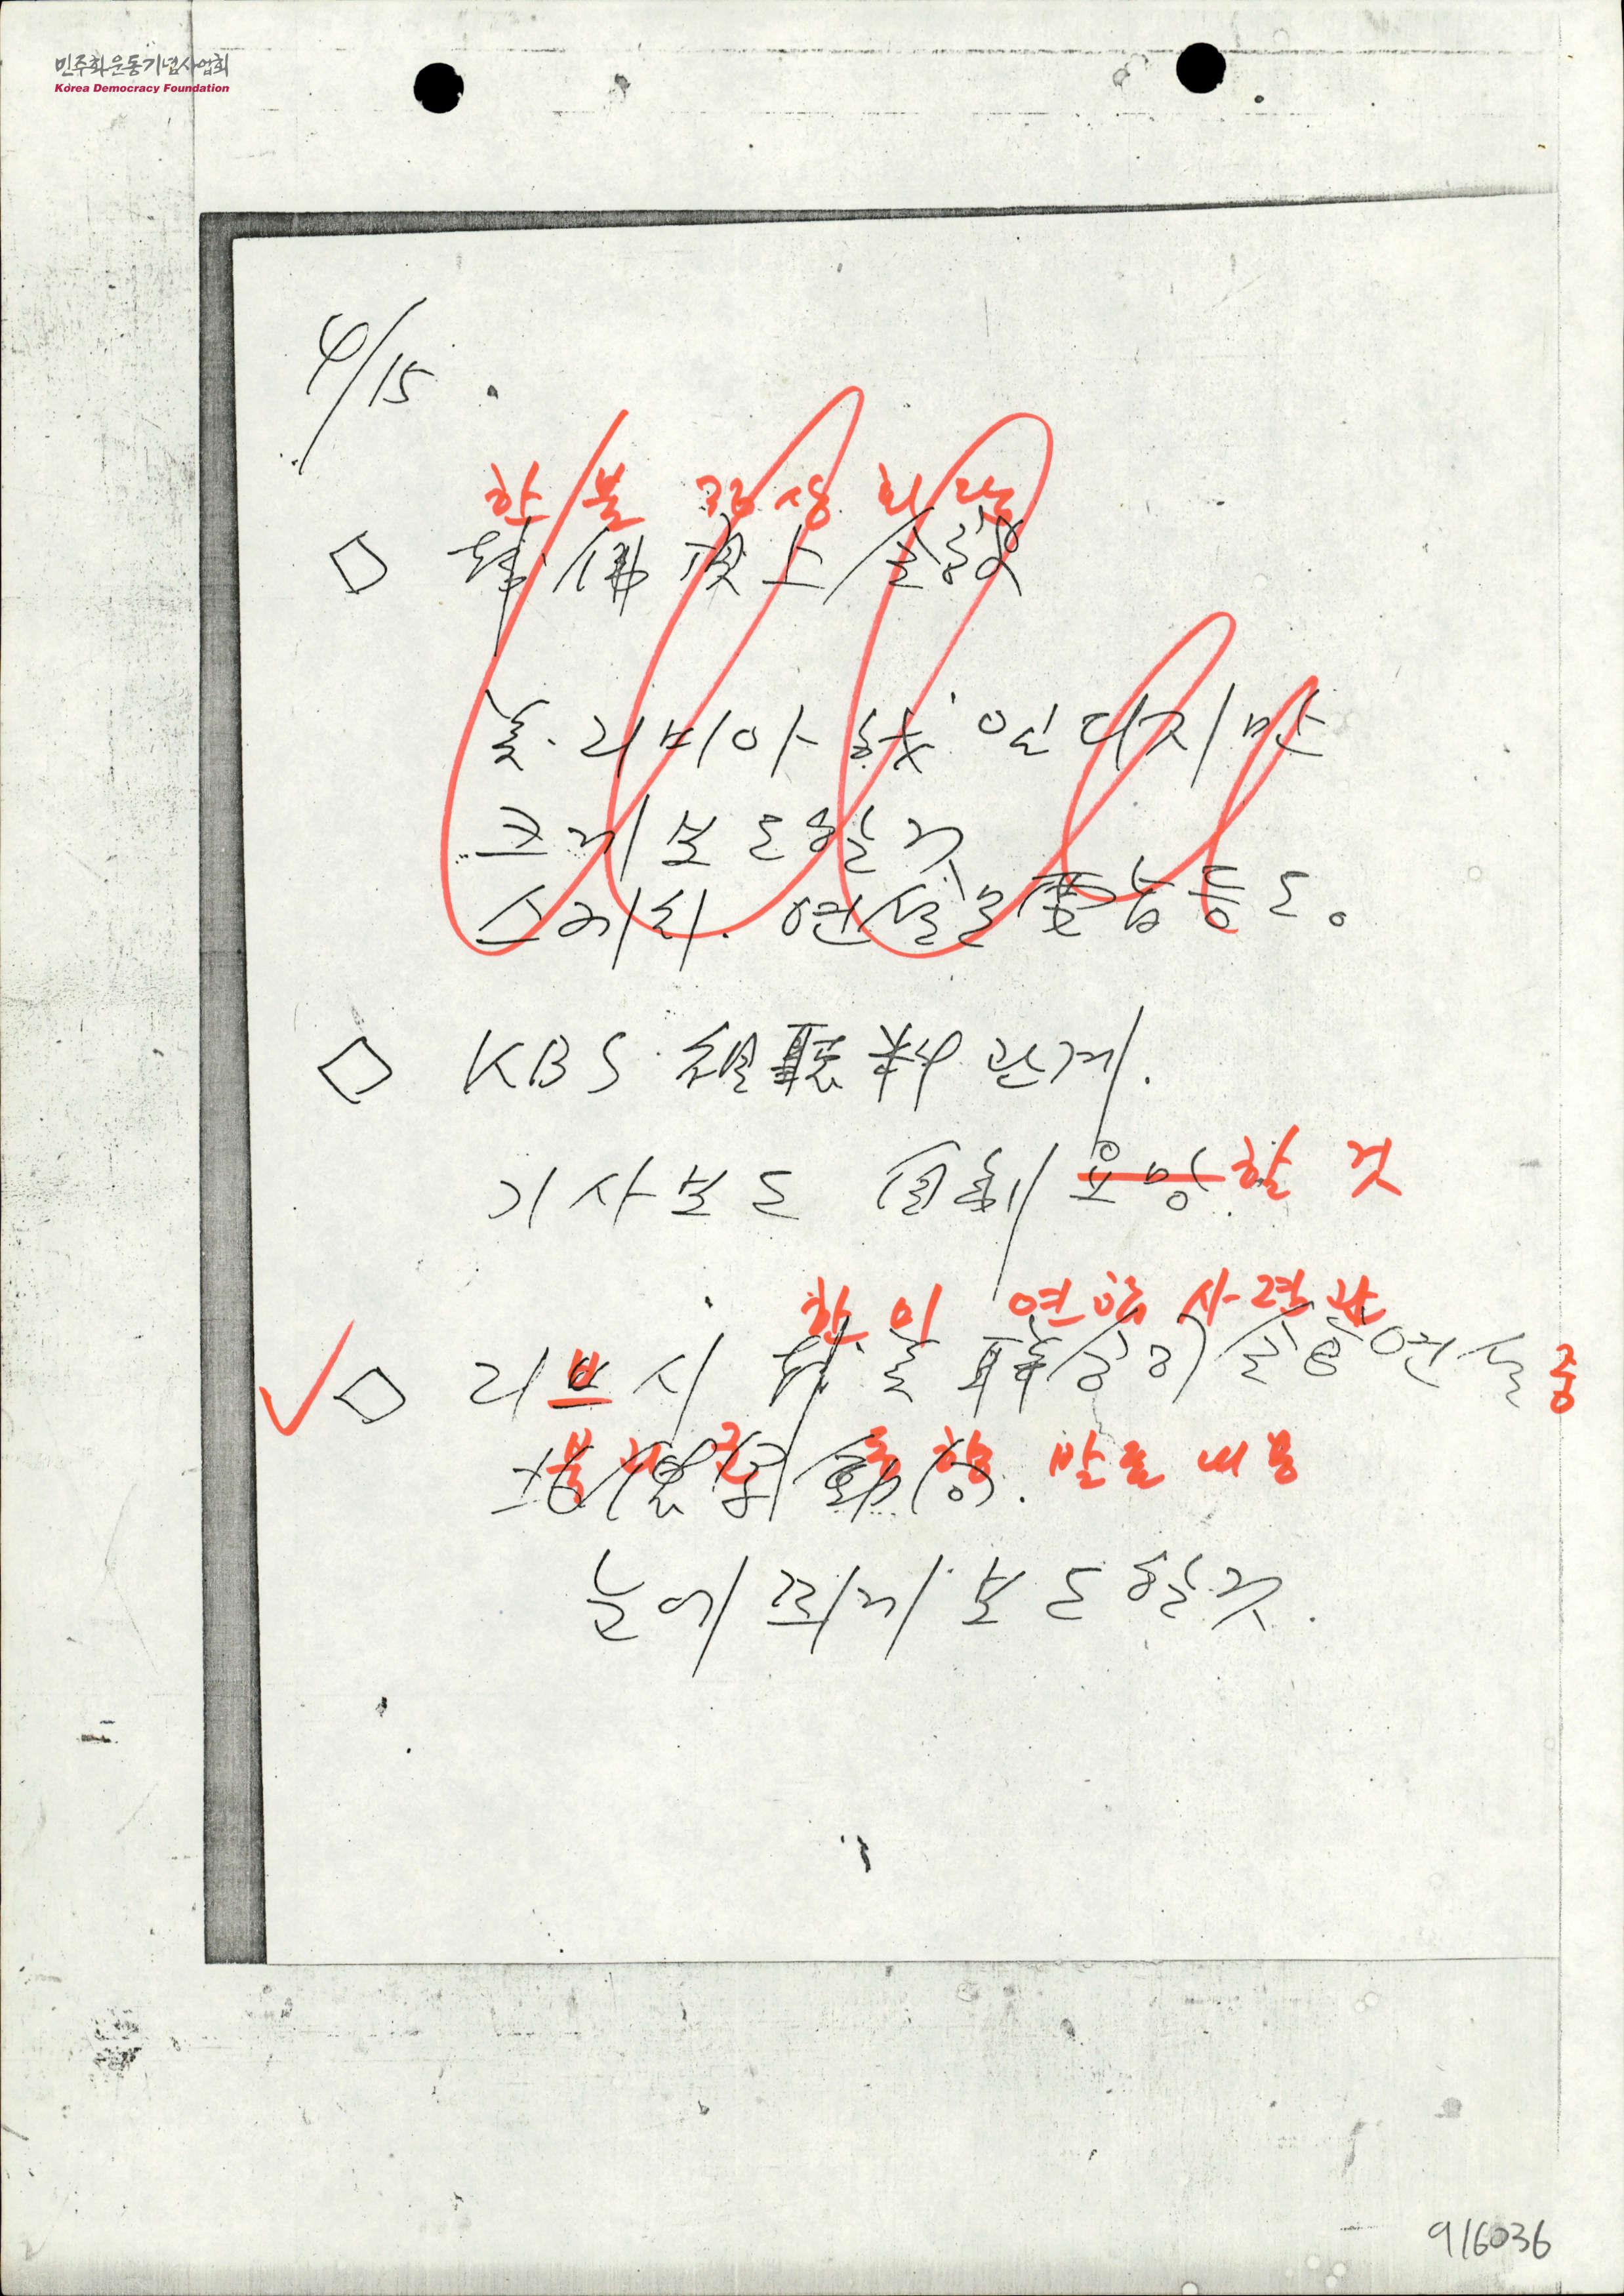 민주화운동기념사업회
Korea Democracy Foundation
4/15
한 불 정상 회담
韓 佛 頂上 会談
美. 리비아 戰 안 터지만
크게 보도할 것
스케치. 연설문 要旨 등도.
KBS 視聽料 관계.
기사보도 自制 요망 할 것
한 미 연합 사령관
리브시 韓美 聯合司 연설 중
북괴군 동향 발언 내용
北傀軍 動向.
눈에 띄게 보도할 것.
916036